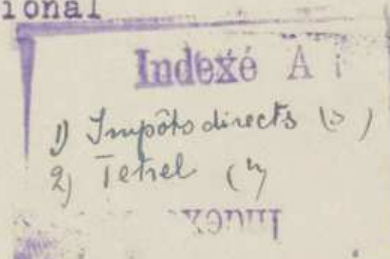 ional
Indexé A
1) Impôts directs (3)
2) Tetrel (4
Index